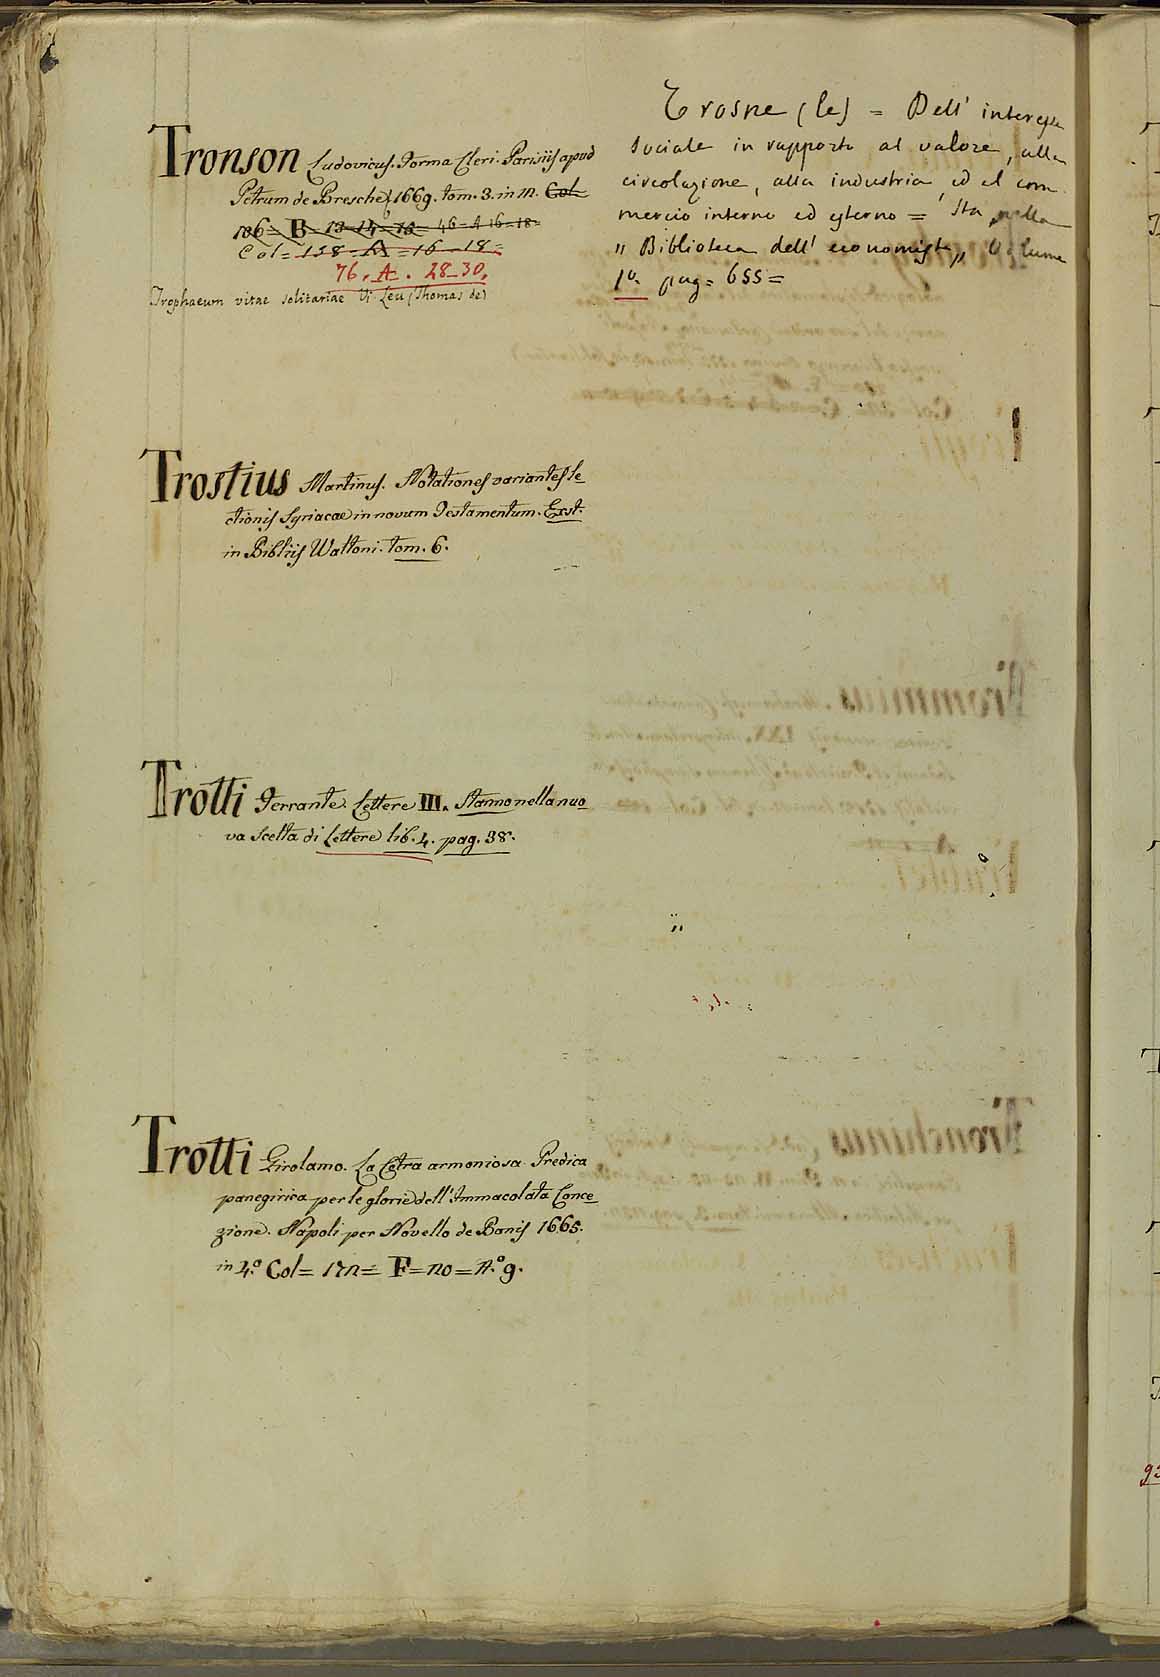 Tronson Ludovicus. Forma Cleri. Parisiis apud
Petrum de Bresche 1669. tom. 3. in 12. Col
106 = B = 13-14-15 = 46 = A 16=18=
Col = 138 = A = 16 - 18 =
76. A. 28-30.
Trophaeum vitae solitariae Vi Leu (Thomas de)
Trostius Martinus. Notationes variantes le
ctionis Syriacae in novum Testamentum. Exst.
in Bibliis Waltoni. tom. 6.
Trotti Ferrante. Lettere III. Stanno nella nuo
va Scelta di Lettere lib. 4. pag. 38.
Trotti Girolamo. La Cetra armoniosa. Predica
panegirica per le glorie dell' Immacolata Conce
zione. Napoli per Novello de Bonis 1665.
in 4.º Col = 172 = F = 20 = A.º 9.
Trosne (le) = Dell' interesse
sociale in rapporto al valore, alla
circolazione, alla industria ed al com
mercio interno ed esterno = Sta nella
" Biblioteca dell' economista „ Volume
1º. pag = 655 =